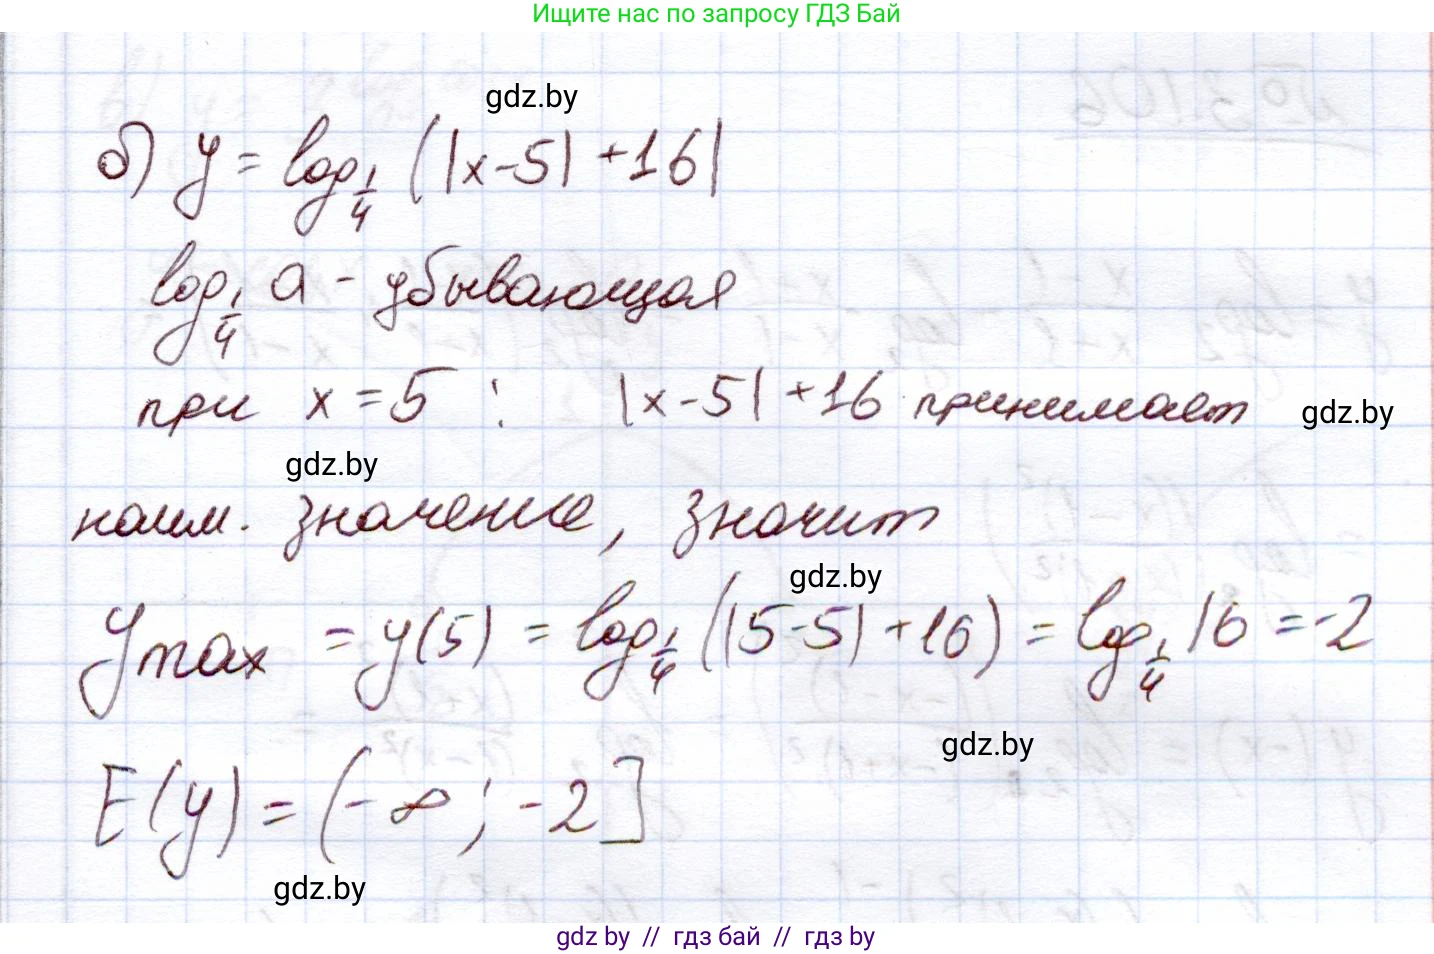 Ищите нас по запросу ГДЗ Бай
gdz.by
б) y = log_{1/4} (|x-5| +16|
log_{1/4} a - убывающая
при x = 5 : |x-5| +16 принимает gdz.by
gdz.by
наим. значение, значит
gdz.by
y_{max} = y(5) = log_{1/4} (|5-5| +16) = log_{1/4} 16 = -2
gdz.by
E(y) = (-∞; -2]
gdz.by
gdz by // гдз бай // гдз by